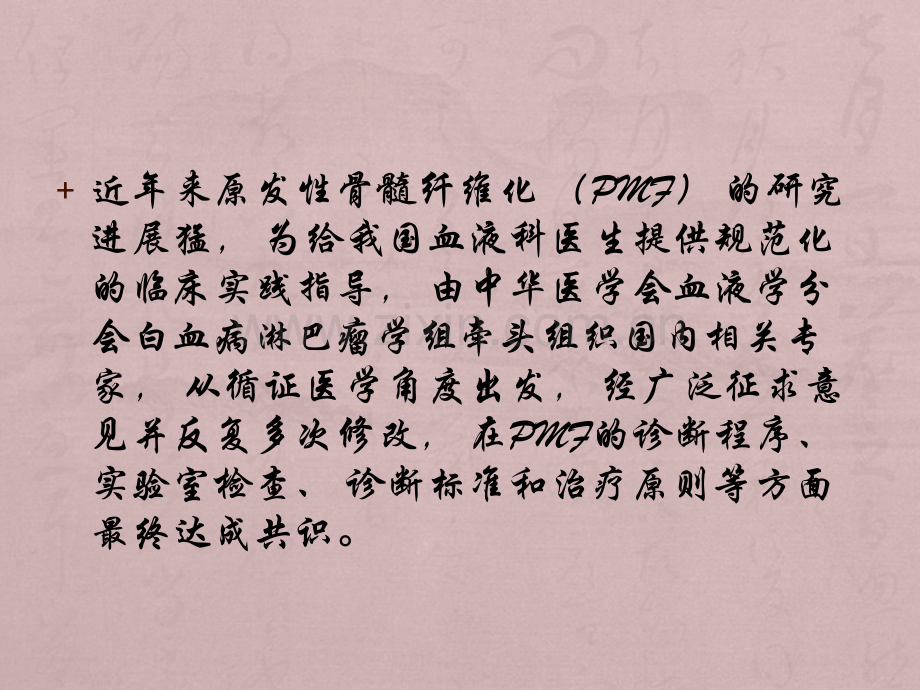 + 近年来原发性骨髓纤维化 (PMF) 的研究
进展猛, 为给我国血液科医生提供规范化
的临床实践指导, 由中华医学会血液学分
会白血病淋巴瘤学组牵头组织国内相关专
家, 从循证医学角度出发, 经广泛征求意
见并反复多次修改, 在PMF的诊断程序、
实验室检查、 诊断标准和治疗原则等方面
最终达成共识。